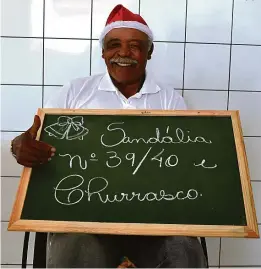 Sandália
Nº 39/40 e
Churrasco.